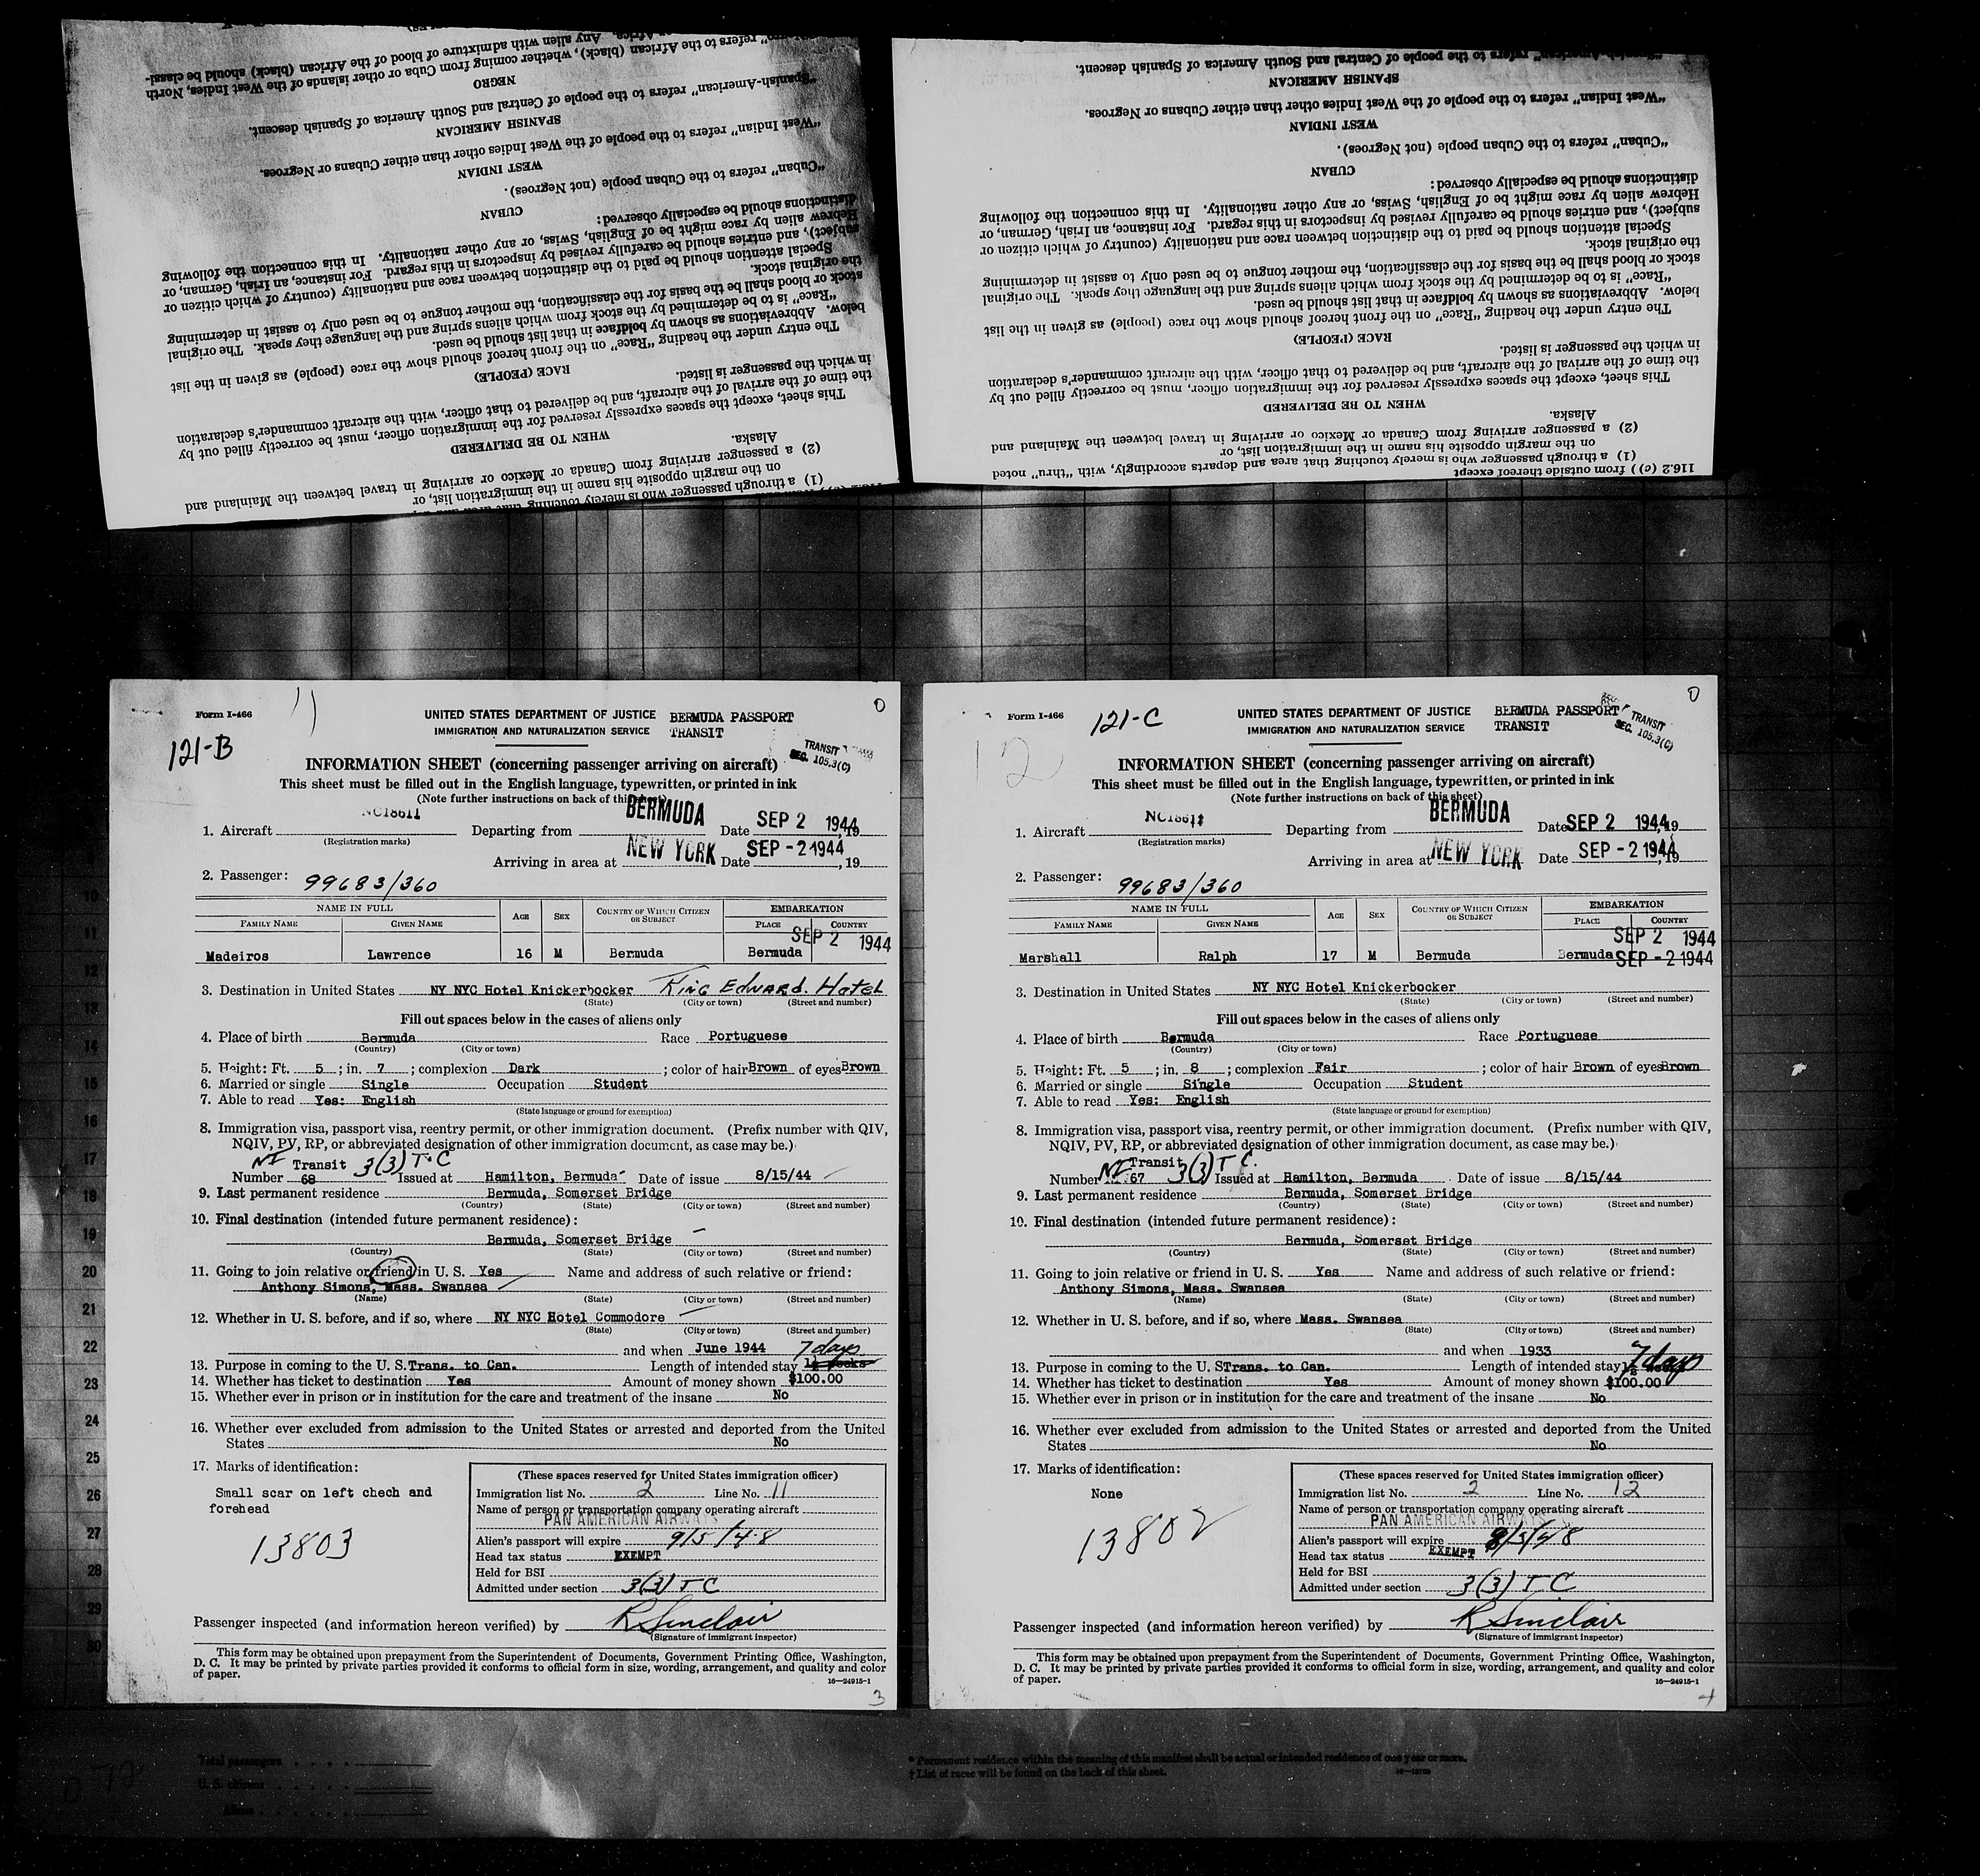 "Spanish-American" refers to the people of Central and South America of Spanish descent.
refers to the African (black), whether coming from Cuba or other islands of the West Indies, North
Any alien with admixture of blood of the African (black) should be classi-
NEGRO
"Spanish-American" refers to the people of Central and South America of Spanish descent.
SPANISH AMERICAN
"West Indian" refers to the people of the West Indies other than either Cubans or Negroes.
WEST INDIAN
"Cuban" refers to the Cuban people (not Negroes).
CUBAN
distinctions should be especially observed:
Hebrew alien by race might be of English, Swiss, or any other nationality. In this connection the following
subject), and entries should be carefully revised by inspectors in this regard. For instance, an Irish, German, or
Special attention should be paid to the distinction between race and nationality (country of which citizen or
the original stock.
stock or blood shall be the basis for the classification, the mother tongue to be used only to assist in determining
"Race" is to be determined by the stock from which aliens spring and the language they speak. The original
below. Abbreviations as shown by boldface in that list should be used.
The entry under the heading "Race" on the front hereof should show the race (people) as given in the list
RACE (PEOPLE)
in which the passenger is listed.
the time of the arrival of the aircraft, and be delivered to that officer, with the aircraft commander's declaration
This sheet, except the spaces expressly reserved for the immigration officer, must be correctly filled out by
WHEN TO BE DELIVERED
Alaska.
(2) a passenger arriving from Canada or Mexico or arriving in travel between the Mainland and
on the margin opposite his name in the immigration list, or
(1) a through passenger who is merely touching that area and
SPANISH AMERICAN
"West Indian" refers to the people of the West Indies other than either Cubans or Negroes.
WEST INDIAN
"Cuban" refers to the Cuban people (not Negroes).
CUBAN
distinctions should be especially observed:
Hebrew alien by race might be of English, Swiss, or any other nationality. In this connection the following
subject), and entries should be carefully revised by inspectors in this regard. For instance, an Irish, German, or
Special attention should be paid to the distinction between race and nationality (country of which citizen or
the original stock.
stock or blood shall be the basis for the classification, the mother tongue to be used only to assist in determining
"Race" is to be determined by the stock from which aliens spring and the language they speak. The original
below. Abbreviations as shown by boldface in that list should be used.
The entry under the heading "Race" on the front hereof should show the race (people) as given in the list
RACE (PEOPLE)
in which the passenger is listed.
the time of the arrival of the aircraft, and be delivered to that officer, with the aircraft commander's declaration
This sheet, except the spaces expressly reserved for the immigration officer, must be correctly filled out by
WHEN TO BE DELIVERED
Alaska.
(2) a passenger arriving from Canada or Mexico or arriving in travel between the Mainland and
on the margin opposite his name in the immigration list, or
(1) a through passenger who is merely touching that area and departs accordingly, with "thru" noted
116.2 (c)) from outside thereof except
Form I-466 11 UNITED STATES DEPARTMENT OF JUSTICE BERMUDA PASSPORT 0
121-B IMMIGRATION AND NATURALIZATION SERVICE TRANSIT
TRANSIT
SEC. 105.3(C)
INFORMATION SHEET (concerning passenger arriving on aircraft)
This sheet must be filled out in the English language, typewritten, or printed in ink
(Note further instructions on back of this sheet)
1. Aircraft NC18611 Departing from BERMUDA Date SEP 2 1944, 19
(Registration marks)
Arriving in area at NEW YORK Date SEP - 2 1944, 19
2. Passenger: 99683/360
NAME IN FULL AGE SEX COUNTRY OF WHICH CITIZEN OR SUBJECT EMBARKATION
FAMILY NAME GIVEN NAME PLACE COUNTRY
SEP 2 1944
Madeiros Lawrence 16 M Bermuda Bermuda
3. Destination in United States NY NYC Hotel Knickerbocker KING EDWARD. HOTEL
(State) (City or town) (Street and number)
Fill out spaces below in the cases of aliens only
4. Place of birth Bermuda Race Portuguese
(Country) (City or town)
5. Height: Ft. 5 ; in. 7 ; complexion Dark ; color of hair Brown of eyes Brown
6. Married or single Single Occupation Student
7. Able to read Yes: English
(State language or ground for exemption)
8. Immigration visa, passport visa, reentry permit, or other immigration document. (Prefix number with QIV,
NQIV, PV, RP, or abbreviated designation of other immigration document, as case may be.)
NI Transit 3(3) T.C
Number 68 Issued at Hamilton, Bermuda Date of issue 8/15/44
9. Last permanent residence Bermuda, Somerset Bridge
(Country) (State) (City or town) (Street and number)
10. Final destination (intended future permanent residence):
Bermuda, Somerset Bridge
(Country) (State) (City or town) (Street and number)
11. Going to join relative or friend in U. S. Yes Name and address of such relative or friend:
Anthony Simons, Mass. Swansea
(Name) (State) (City or town) (Street and number)
12. Whether in U. S. before, and if so, where NY NYC Hotel Commodore
(State) (City or town) (Street and number)
and when June 1944 7 days
13. Purpose in coming to the U. S. Trans. to Can. Length of intended stay
14. Whether has ticket to destination Yes Amount of money shown $100.00
15. Whether ever in prison or in institution for the care and treatment of the insane No
16. Whether ever excluded from admission to the United States or arrested and deported from the United
States No
17. Marks of identification:
Small scar on left chech and
forehead
13803
(These spaces reserved for United States immigration officer)
Immigration list No. 2 Line No. 11
Name of person or transportation company operating aircraft
PAN AMERICAN AIRWAYS
Alien's passport will expire 9/5/48
Head tax status EXEMPT
Held for BSI
Admitted under section 3(3) TC
Passenger inspected (and information hereon verified) by R Sinclair
(Signature of immigrant inspector)
This form may be obtained upon prepayment from the Superintendent of Documents, Government Printing Office, Washington,
D. C. It may be printed by private parties provided it conforms to official form in size, wording, arrangement, and quality and color
of paper.
16—24915-1
3
Form I-466 121-C UNITED STATES DEPARTMENT OF JUSTICE BERMUDA PASSPORT 0
12 IMMIGRATION AND NATURALIZATION SERVICE TRANSIT
TRANSIT
SEC. 105.3(C)
INFORMATION SHEET (concerning passenger arriving on aircraft)
This sheet must be filled out in the English language, typewritten, or printed in ink
(Note further instructions on back of this sheet)
1. Aircraft NC18611 Departing from BERMUDA Date SEP 2 1944, 19
(Registration marks)
Arriving in area at NEW YORK Date SEP - 2 1944, 19
2. Passenger: 99683/360
NAME IN FULL AGE SEX COUNTRY OF WHICH CITIZEN OR SUBJECT EMBARKATION
FAMILY NAME GIVEN NAME PLACE COUNTRY
SEP 2 1944
Marshall Ralph 17 M Bermuda Bermuda SEP - 2 1944
3. Destination in United States NY NYC Hotel Knickerbocker
(State) (City or town) (Street and number)
Fill out spaces below in the cases of aliens only
4. Place of birth Bermuda Race Portuguese
(Country) (City or town)
5. Height: Ft. 5 ; in. 8 ; complexion Fair ; color of hair Brown of eyes Brown
6. Married or single Single Occupation Student
7. Able to read Yes: English
(State language or ground for exemption)
8. Immigration visa, passport visa, reentry permit, or other immigration document. (Prefix number with QIV,
NQIV, PV, RP, or abbreviated designation of other immigration document, as case may be.)
NI Transit 3(3) T C.
Number 67 Issued at Hamilton, Bermuda Date of issue 8/15/44
9. Last permanent residence Bermuda, Somerset Bridge
(Country) (State) (City or town) (Street and number)
10. Final destination (intended future permanent residence):
Bermuda, Somerset Bridge
(Country) (State) (City or town) (Street and number)
11. Going to join relative or friend in U. S. Yes Name and address of such relative or friend:
Anthony Simons, Mass. Swansea
(Name) (State) (City or town) (Street and number)
12. Whether in U. S. before, and if so, where Mass. Swansea
(State) (City or town) (Street and number)
and when 1933
13. Purpose in coming to the U. S. Trans. to Can. Length of intended stay 7 days
14. Whether has ticket to destination Yes Amount of money shown $100.00
15. Whether ever in prison or in institution for the care and treatment of the insane No
16. Whether ever excluded from admission to the United States or arrested and deported from the United
States No
17. Marks of identification:
None
13802
(These spaces reserved for United States immigration officer)
Immigration list No. 2 Line No. 12
Name of person or transportation company operating aircraft
PAN AMERICAN AIRWAYS
Alien's passport will expire 9/5/48
Head tax status EXEMPT
Held for BSI
Admitted under section 3(3) TC
Passenger inspected (and information hereon verified) by R Sinclair
(Signature of immigrant inspector)
This form may be obtained upon prepayment from the Superintendent of Documents, Government Printing Office, Washington,
D. C. It may be printed by private parties provided it conforms to official form in size, wording, arrangement, and quality and color
of paper.
16—24915-1
4
Total passengers
U. S. citizens
Aliens
* Permanent residence within the meaning of this manifest shall be actual or intended residence of one year or more.
† List of races will be found on the back of this sheet.